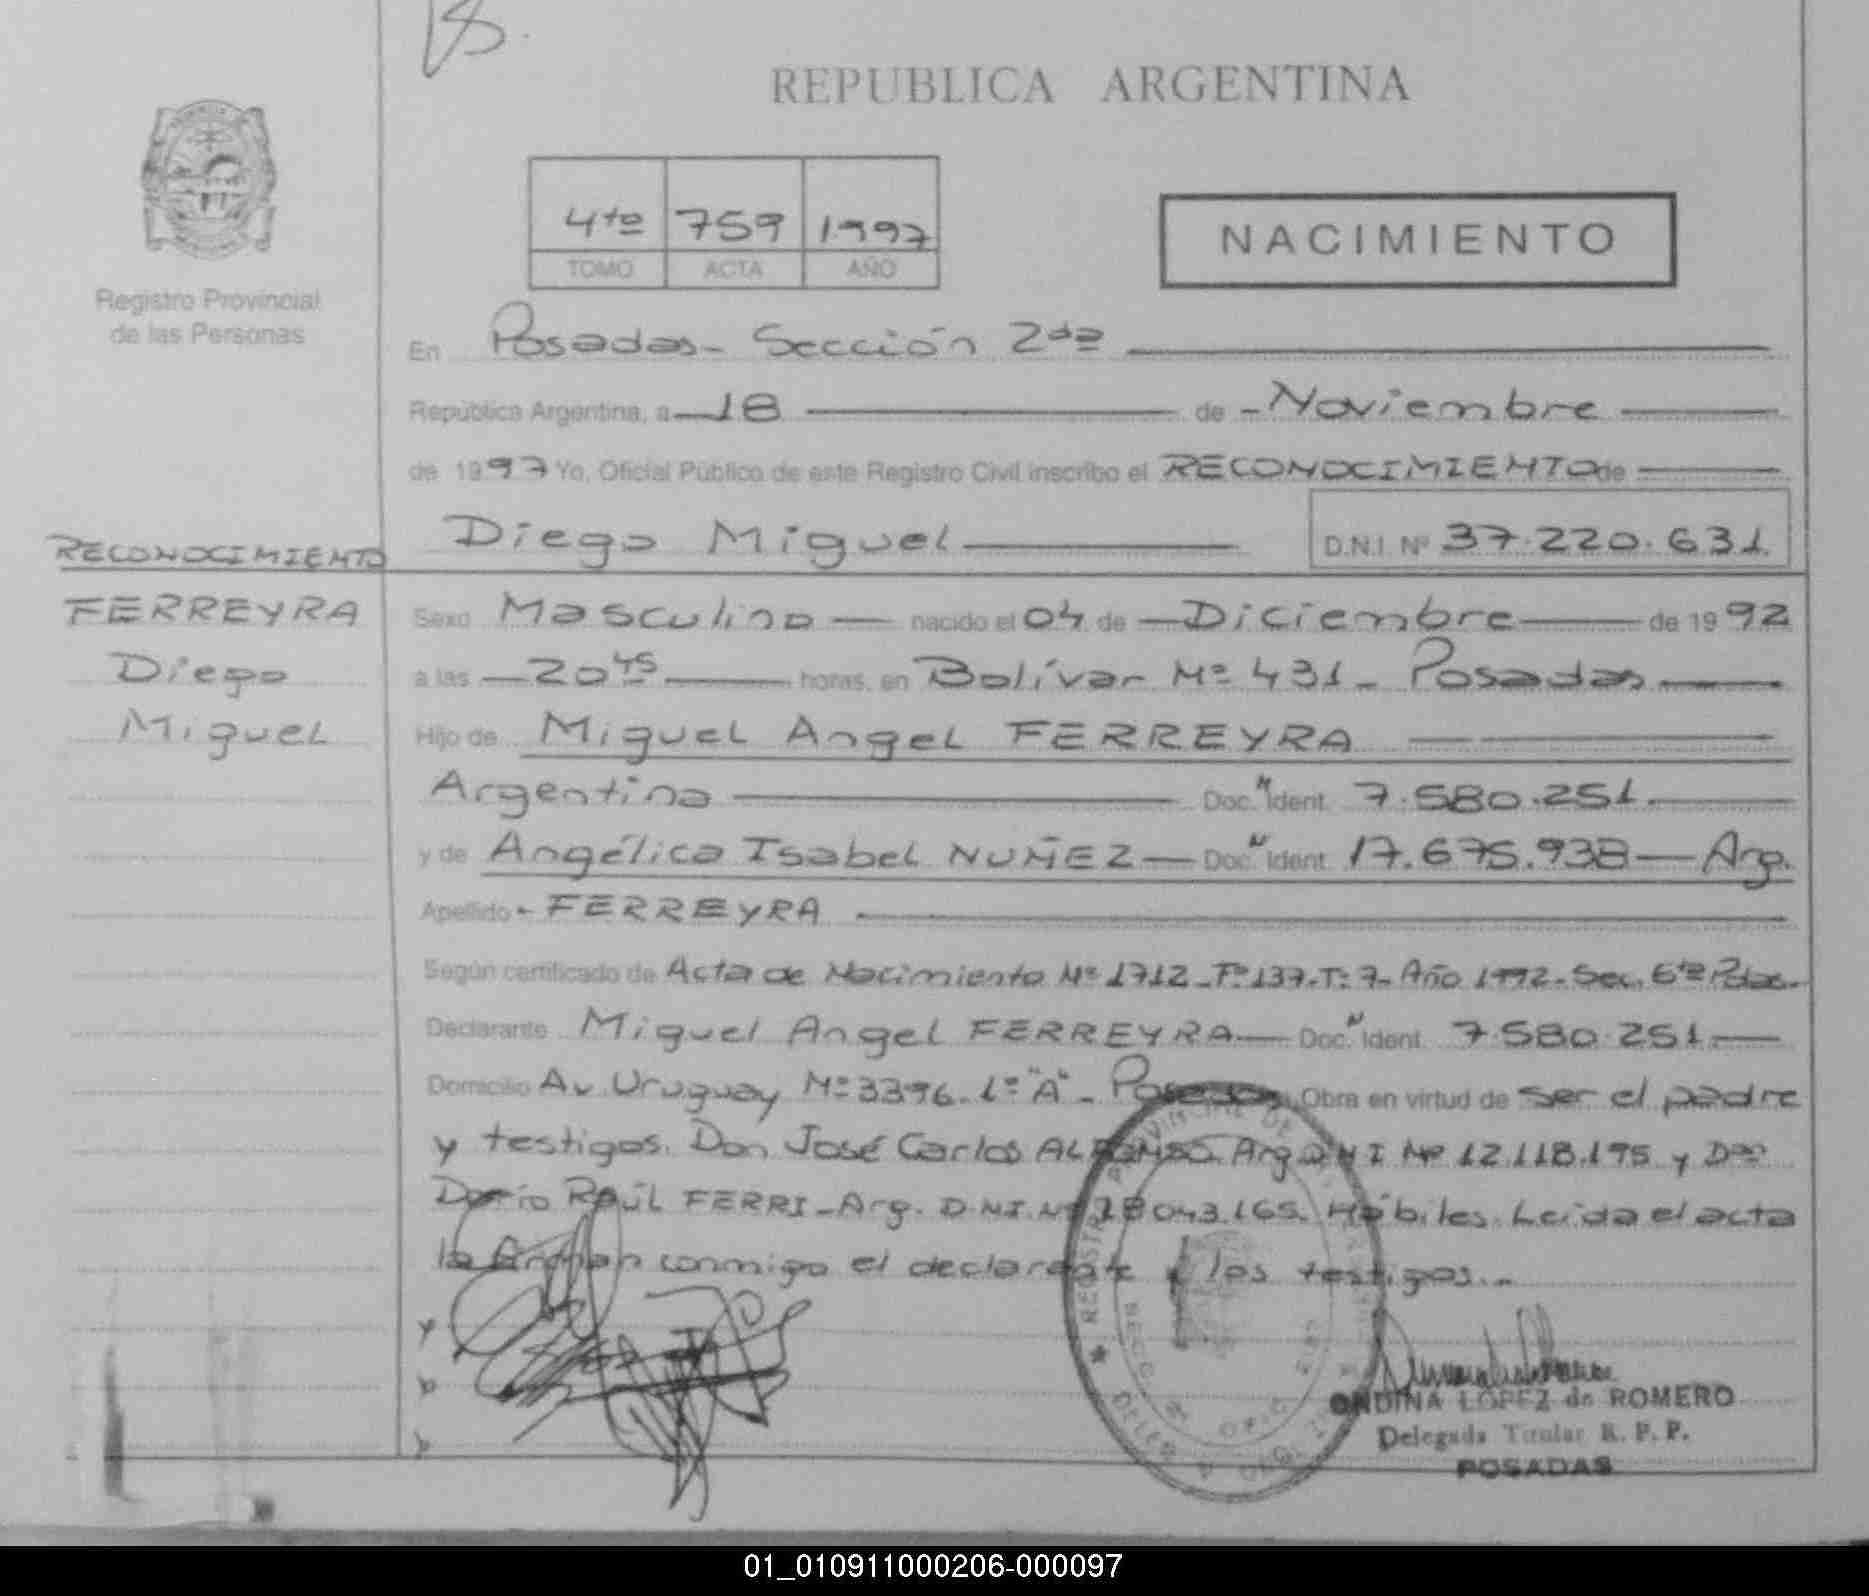 REPUBLICA ARGENTINA
4to 759 1997
TOMO ACTA AÑO
NACIMIENTO
Registro Provincial
de las Personas
En Posadas - Sección 2da
República Argentina, a 18 de Noviembre
de 1997 Yo, Oficial Público de este Registro Civil inscribo el RECONOCIMIENTO de
Diego Miguel D.N.I. Nº 37.220.631
RECONOCIMIENTO
FERREYRA
Diego
Miguel
Sexo Masculino nacido el 04 de Diciembre de 1992
a las 20 45 horas, en Bolívar Nº 431 - Posadas
Hijo de Miguel Angel FERREYRA
Argentino Doc. Ident. 7.580.251
y de Angélica Isabel NUÑEZ Doc. Ident. 17.675.938 Arg.
Apellido - FERREYRA
Según certificado de Acta de Nacimiento Nº 1712 - Fº 137 - Tº 7 - Año 1992 - Sec. 6ta Pdas.
Declarante Miguel Angel FERREYRA Doc. Ident. 7.580.251
Domicilio Av. Uruguay Nº 3396 - 1º "A" - Posadas Obra en virtud de ser el padre
y testigos. Don José Carlos ALFONSO. Arg. DNI Nº 12.118.195 y Don
Darío Raúl FERRI - Arg. D.N.I. Nº 18.043.165. Hábiles. Leída el acta
la firman conmigo el declarante y los testigos.-
ONDINA LOPEZ de ROMERO
Delegada Titular R. P. P.
POSADAS
01_010911000206-000097